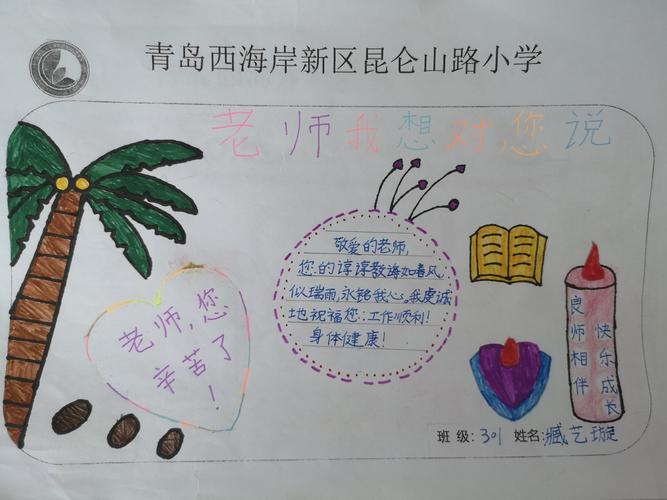 青岛西海岸新区昆仑山路小学
老师我想对您说
敬爱的老师，
您的谆谆教诲如春风，
似瑞雨，永铭我心。我虔诚
地祝福您：工作顺利！
身体健康！
老师，您
辛苦了
！
良师相伴
快乐成长
班级：301 姓名：臧艺璇